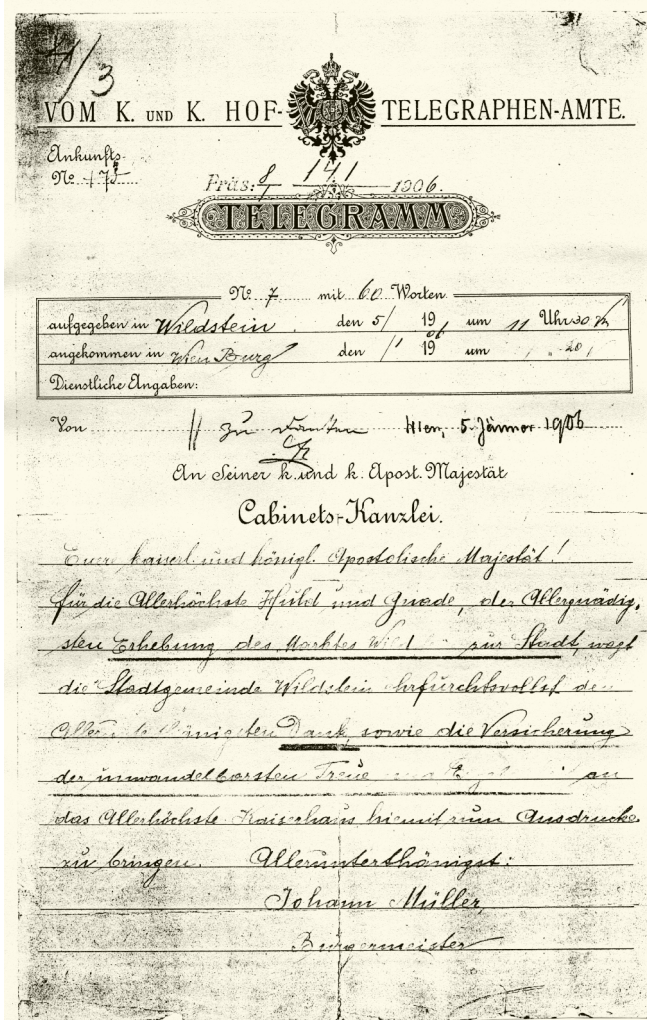 /3
VOM K. UND K. HOF-TELEGRAPHEN-AMTE.
Ankunfts-
No 175
Präs: 8/1 141 1906.
TELEGRAMM
No 7 mit 60 Worten
aufgegeben in Wildstein. den 5/ 19 06 um 11 Uhr 30
angekommen in Wien Burg den /1 19 um 20
Dienstliche Angaben:
Von zu danken Wien, 5. Jänner 1906
An Seiner k. und k. Apost. Majestät
Cabinets-Kanzlei.
Euere kaiserl. und königl. Apostolische Majestät!
für die Allerhöchste Huld und Gnade, der Allergnädig-
sten Erhebung des Marktes Wild zur Stadt, wagt
die Stadtgemeinde Wildstein ehrfurchtsvollst den
Dank, sowie die Versicherung
der unwandelbarsten Treue an
das Allerhöchste Kaiserhaus hiemit zum Ausdrucke
zu bringen. Allerunterthänigst:
Johann Müller,
Bürgermeister